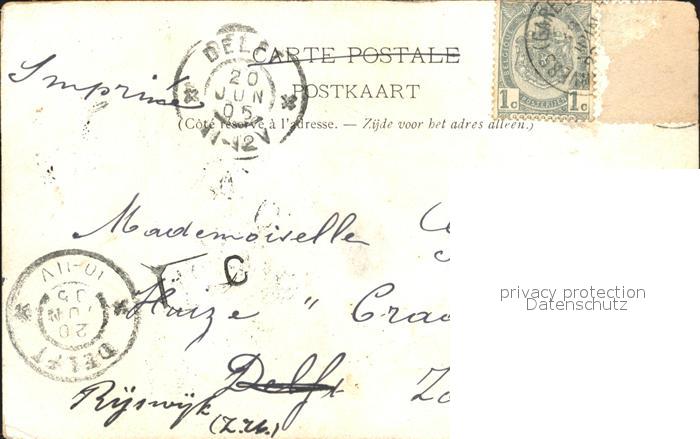 CARTE POSTALE
POSTKAART
(Côté réservé à l'adresse. — Zijde voor het adres alleen.)
Imprimé
DELFT
20
JUN
05
11-12V
1c 1c
Mademoiselle
C
Huize "
Delft
Rijswijk
(Z.H.)
DELFT
20
JUN
05
10-11V
privacy protection
Datenschutz